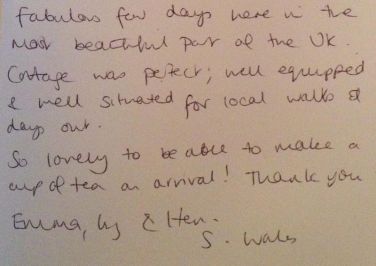 Fabulous few days here in the
most beautiful part of the UK.
Cottage was perfect; well equipped
& well situated for local walks &
days out.
So lovely to be able to make a
cup of tea on arrival! Thank you
Emma, &
S. Wales